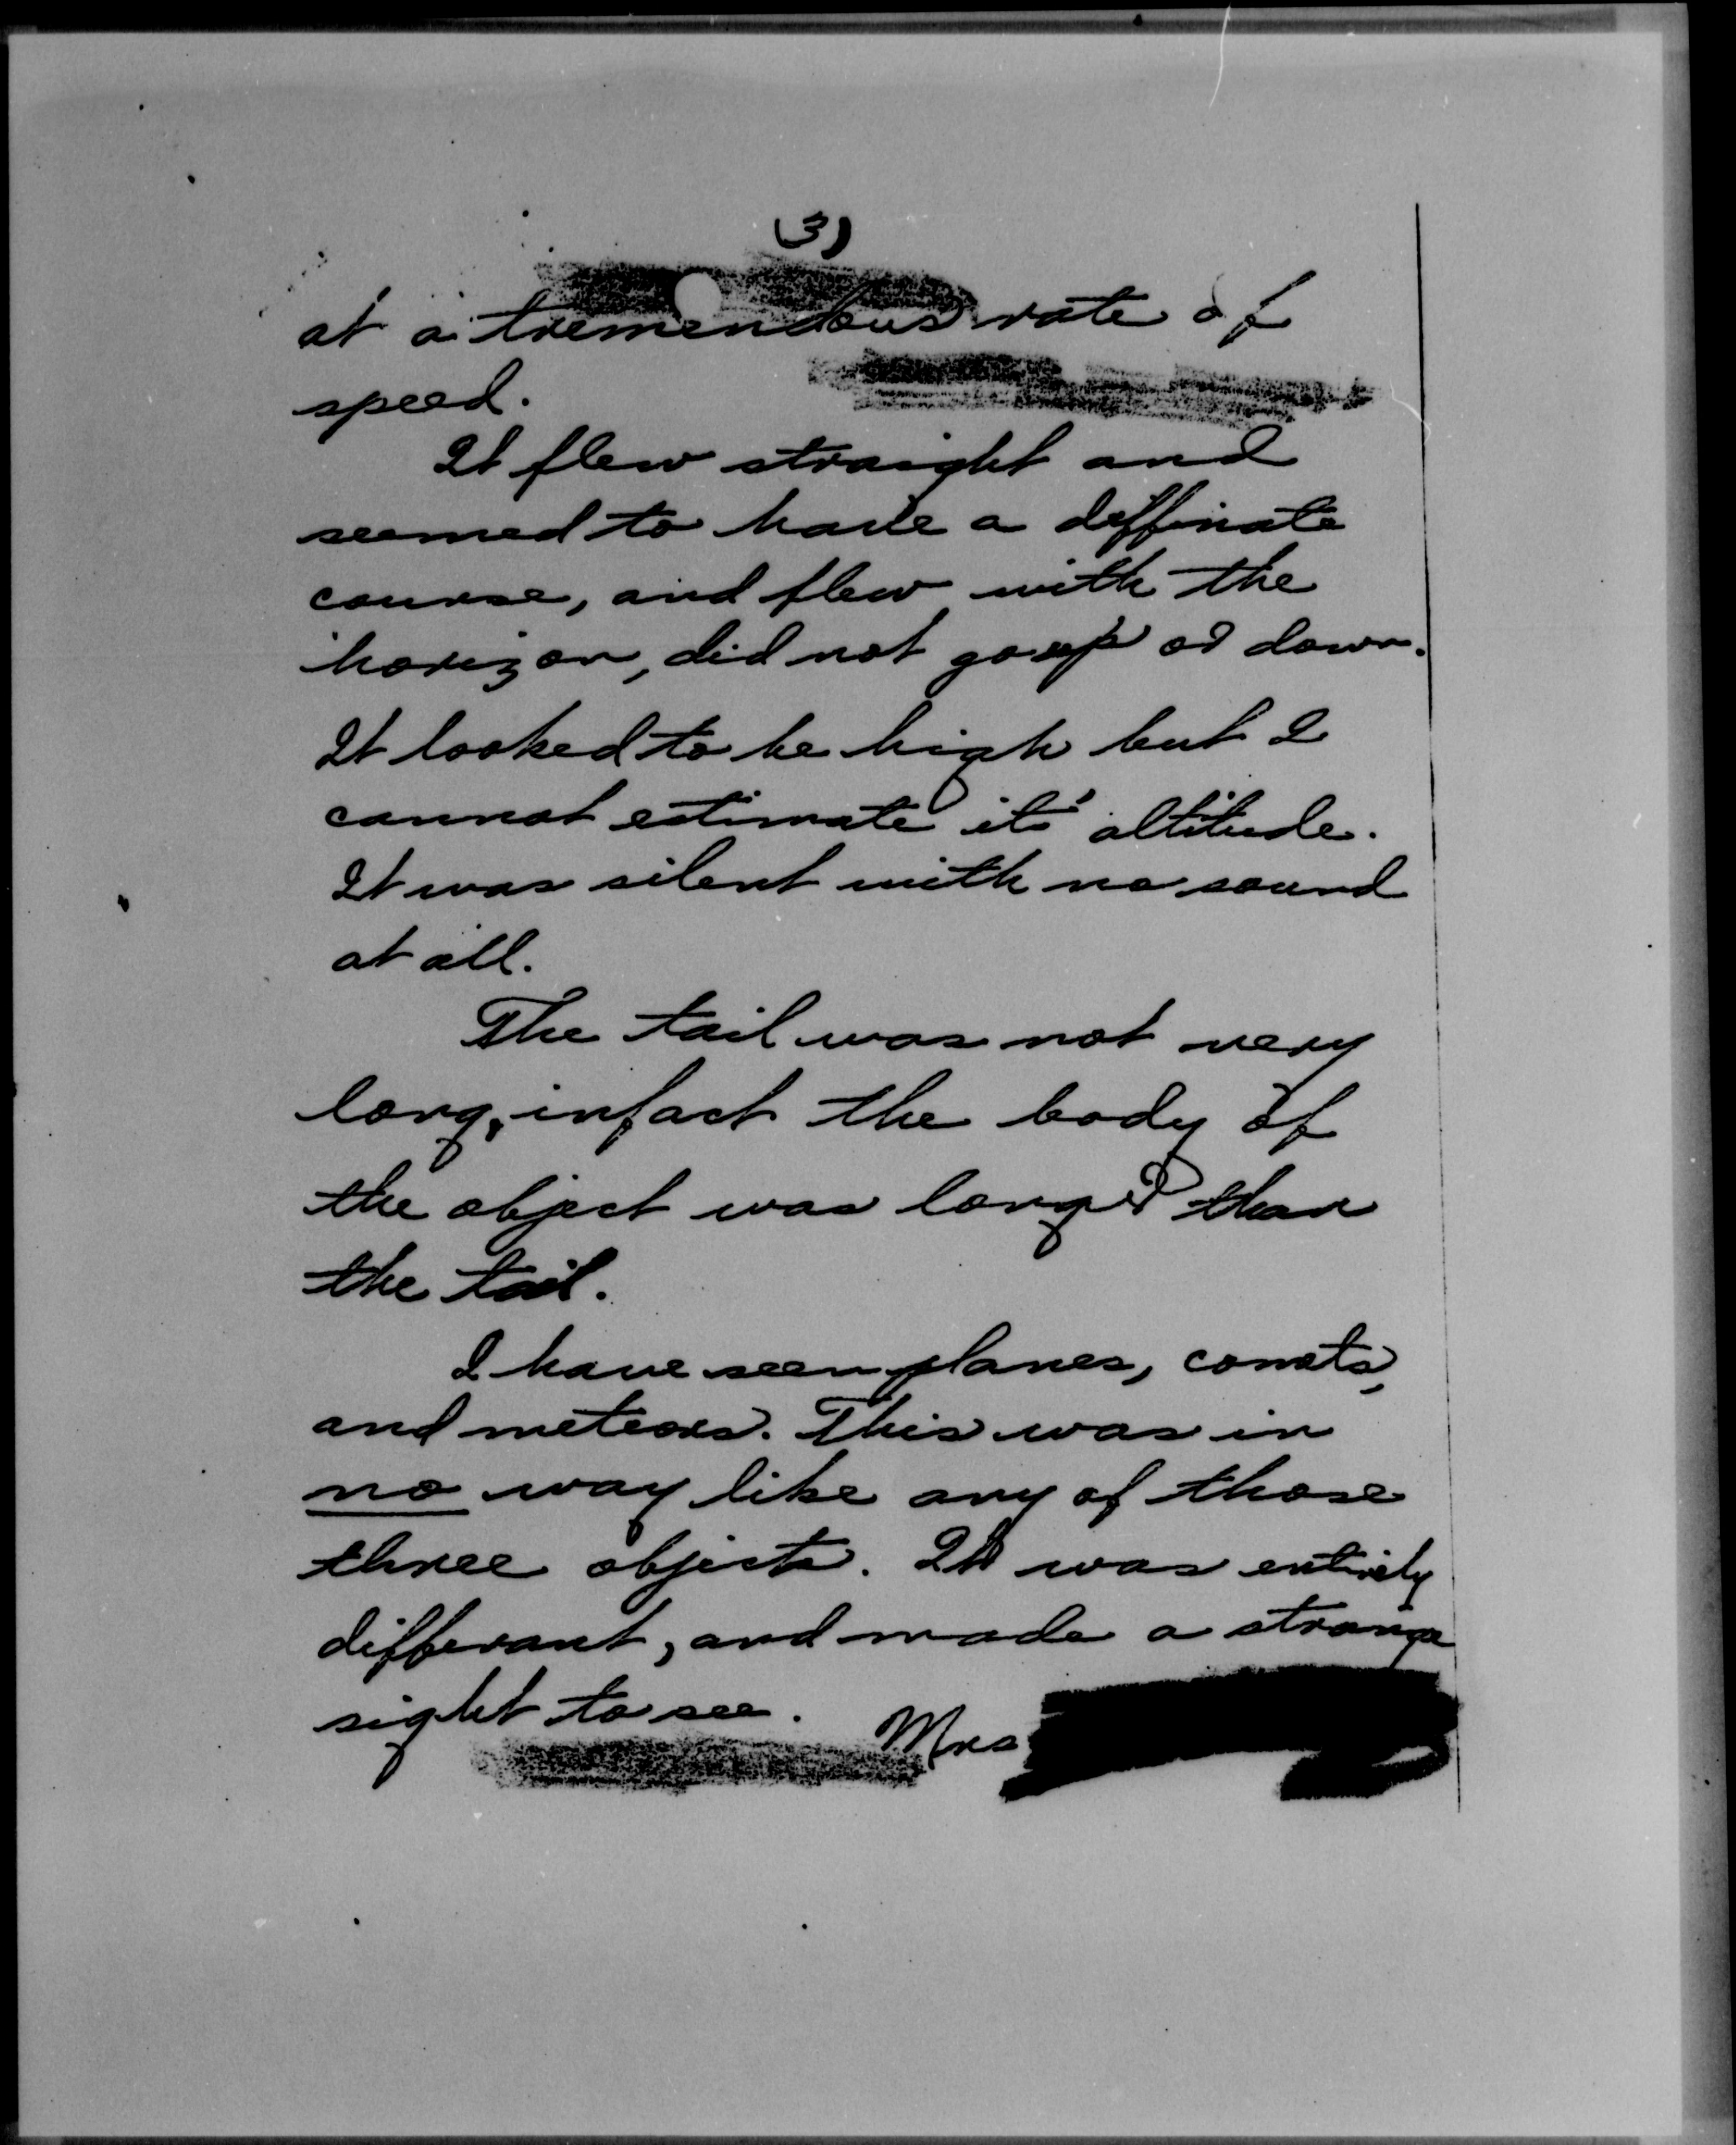 (3)
at a tremendous rate of
speed.
It flew straight and
seemed to have a deffinate
course, and flew with the
horizon, did not go up or down.
It looked to be high but I
cannot estimate its' altitude.
It was silent with no sound
at all.
The tail was not very
long, infact the body of
the object was longer than
the tail.
I have seen planes, comets,
and meteors. This was in
no way like any of those
three objects. It was entirely
differant, and made a strange
sight to see.
Mrs